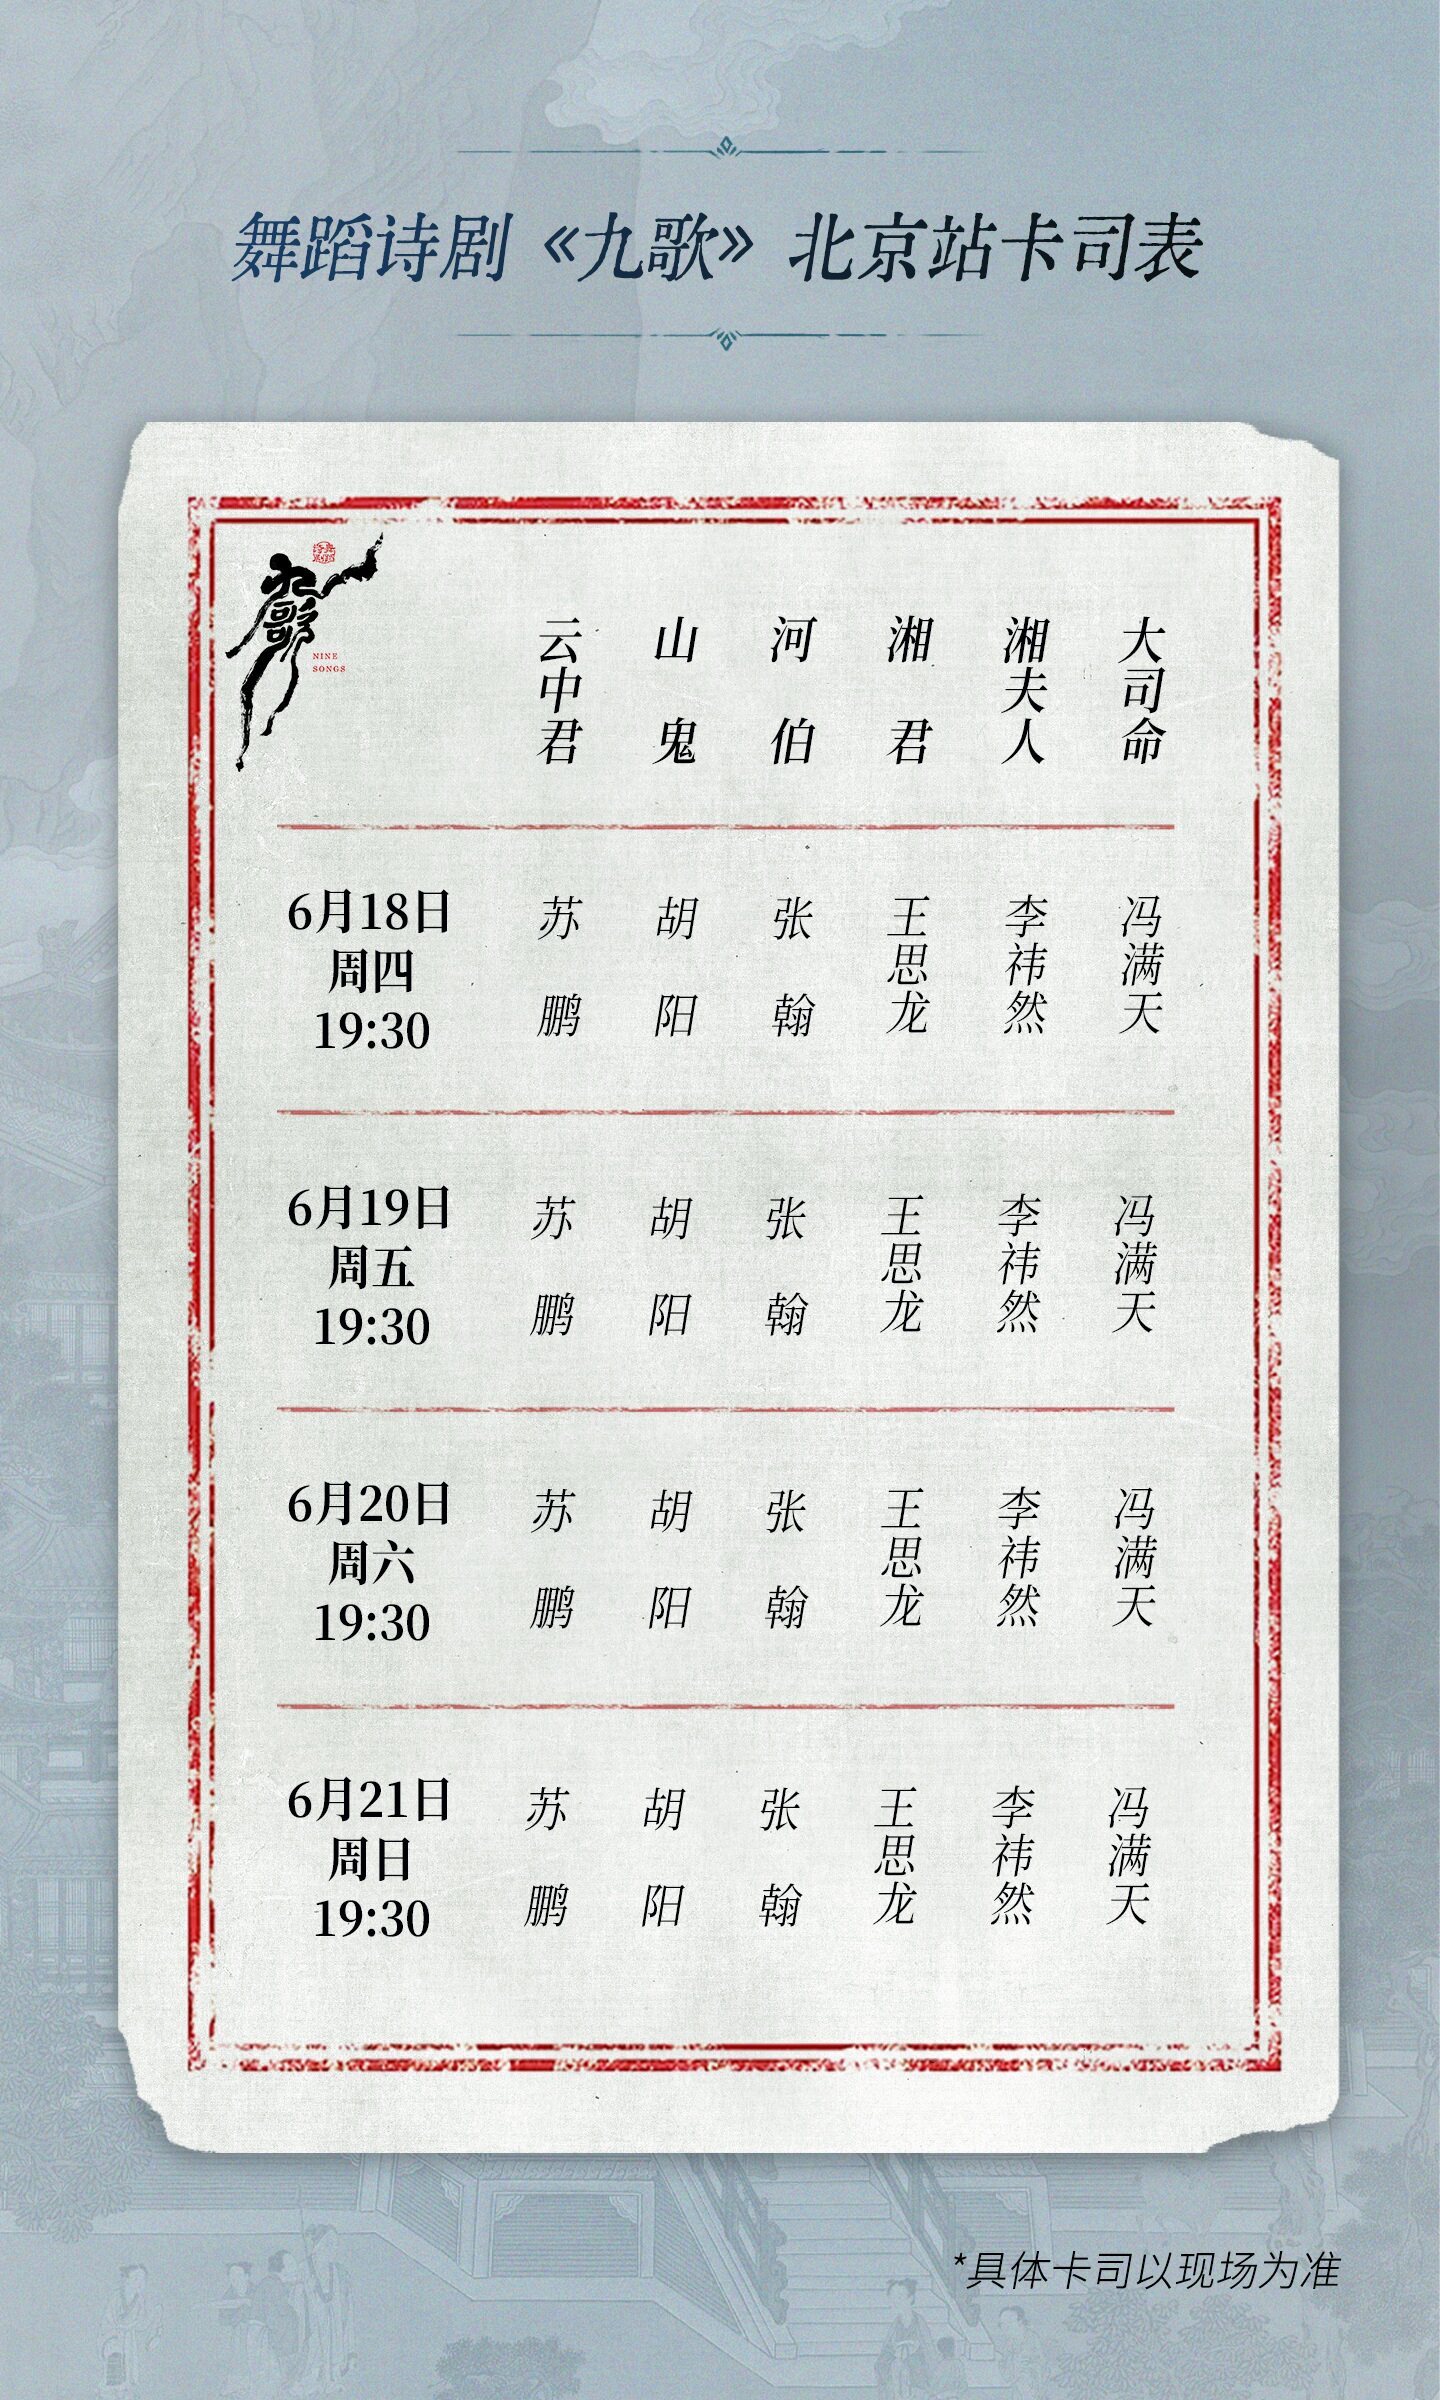 舞蹈诗剧《九歌》北京站卡司表
九歌
NINE
SONGS
云中君 山鬼 河伯 湘君 湘夫人 大司命
6月18日
周四
19:30
苏鹏 胡阳 张翰 王思龙 李祎然 冯满天
6月19日
周五
19:30
苏鹏 胡阳 张翰 王思龙 李祎然 冯满天
6月20日
周六
19:30
苏鹏 胡阳 张翰 王思龙 李祎然 冯满天
6月21日
周日
19:30
苏鹏 胡阳 张翰 王思龙 李祎然 冯满天
*具体卡司以现场为准